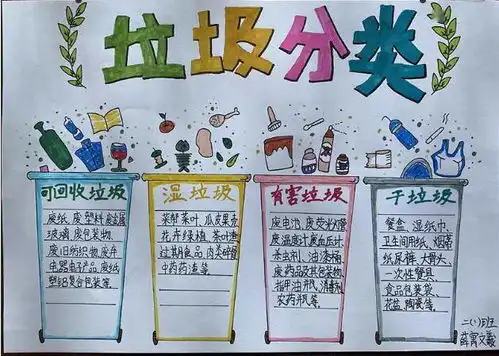 垃圾分类
可回收垃圾
废纸、废塑料、废金属
玻璃、废包装物、
废旧纺织物、废弃
电器电子产品、废纸
塑铝复合包装等。
湿垃圾
菜梗菜叶、瓜皮果
花卉绿植、茶叶渣
过期食品、肉类碎骨
中药药渣等。
有害垃圾
废电池、废荧光灯管
废温度计、废血压计、
杀虫剂、油漆桶、
废药品及其包装物、
指甲油瓶、消毒剂
农药瓶等。
干垃圾
餐盒、湿纸巾、
卫生间用纸、烟蒂
纸尿裤、大骨头、
一次性餐具、
食品包装袋、
花盆、陶瓷等。
二(1)班
薛